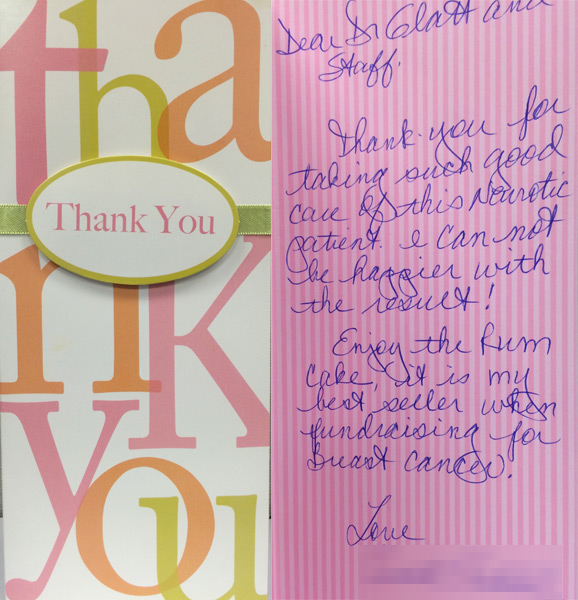 tha
nk
you
Thank You
Dear Dr Glatt and
Staff.
Thank you for
taking such good
care of this Neurotic
patient. I can not
be happier with
the result!
Enjoy the Rum
Cake, it is my
best seller when
fundraising for
Breast Cancer!
Love